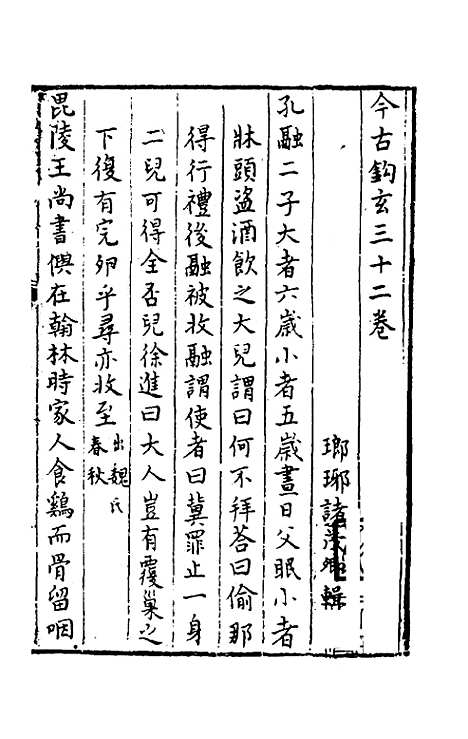 今古鈎玄三十二卷
瑯琊諸茂卿輯
孔融二子大者六歲小者五歲晝日父眠小者
牀頭盜酒飲之大兒謂曰何不拜荅曰偷那
得行禮後融被收融謂使者曰冀罪止一身
二兒可得全否兒徐進曰大人豈有覆巢之
下復有完卵乎尋亦收至出魏氏春秋
毘陵王尚書㒜在翰林時家人食鷄而骨留咽